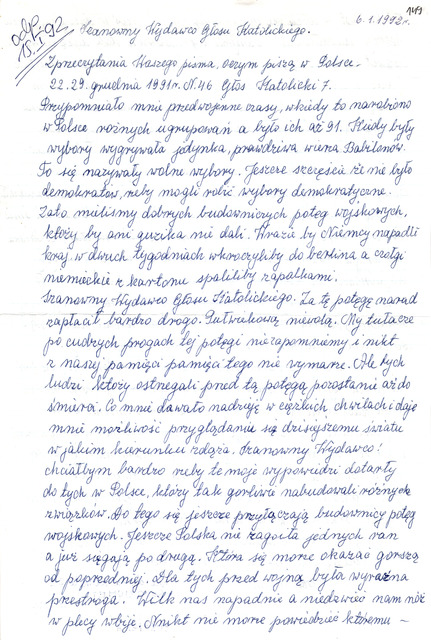 149
6.1.1992r.
odp.
15.I.92
Szanowny Wydawco Głosu Katolickiego.
Zprzeczytania Waszego pisma, oczym piszą w Polsce -
22.29. grudnia 1991r. N.46 Głos Katolicki 7.
Przypomniało mnie przedwojenne czasy, wkiedy to narobiono
w Polsce rożnych ugrupowań a było ich aż 91. Kiedy były
wybory wygrywała jedynka, prawdziwa wieża Babilonów.
To się nazywały wolne wybory. Jeszcze szczęścia że nie było
demokratów, żeby mogli robić wybory demokratyczne.
Zato mieliśmy dobrych budowniczych potęg wojskowych,
którzy by ani guzika nie dali. Wrazie by Niemcy napadli
kraj, w dwuch tygodniach wkroczyliby do berlina a czołgi
niemieckie z kartonu spaliliby zapałkami.
Szanowny Wydawco Głosu Katolickiego. Za tę potęgę narod
zapłacił bardzo drogo. Pułwiekową niewolą. My tułacze
po cudzych progach tej potęgi niezapomniemy i nikt
z naszej pamięci pamięci tego nie wymaże. Ale tych
ludzi ktorzy ostrzegali pred tą potęgą pozostanie aż do
śmierci. Co mnie dawało nadzieję w ciężkich chwilach i daje
mnie możliwość przyglądaniu się dzisiejszemu światu
w jakim kierunku zdąża. Szanowny Wydawco!
chciałbym bardzo żeby te moje wypowiedzi dotarły
do tych w Polsce, którzy tak gorliwie nabudowali różnych
związków. Do tego się jeszcze przyłączają budowniczy potęg
wojskowych. Jeszcze Polska nie zagoiła jednych ran
a już sięgają po drugą. Która się może okazać gorszą
od poprzedniej. Dla tych przed wojną była wyraźna
przestroga. Wilk nas napadnie a niedzwiec nam nóż
w plecy wbije. Nnikt nie może powiedzieć ktoremu -